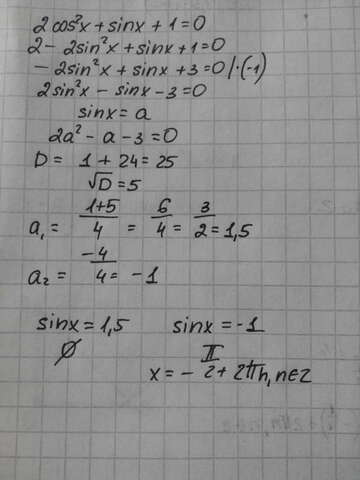 2cos²x + sinx + 1 = 0
2 - 2sin²x + sinx + 1 = 0
- 2sin²x + sinx + 3 = 0 | ·(-1)
2sin²x - sinx - 3 = 0
sinx = a
2a² - a - 3 = 0
D = 1 + 24 = 25
√D = 5
a₁ = (1+5)/4 = 6/4 = 3/2 = 1,5
a₂ = -4/4 = -1
sinx = 1,5 sinx = -1
∅
x = - π/2 + 2πn, n∈z